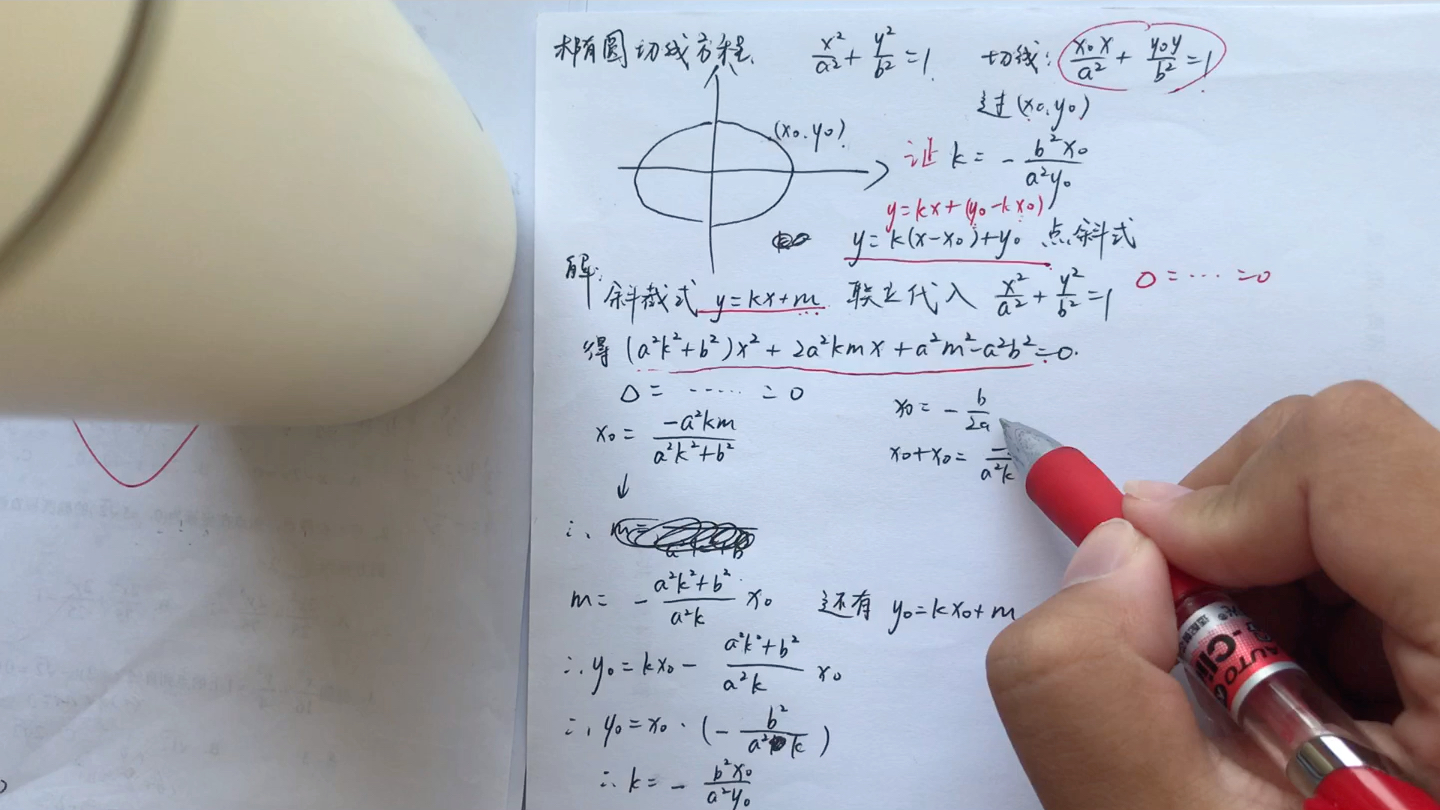 椭圆切线方程 x²/a² + y²/b² = 1 切线: x₀x/a² + y₀y/b² = 1
过(x₀,y₀)
(x₀,y₀)
证 k = - b²x₀/a²y₀
y=kx+(y₀-kx₀)
y=k(x-x₀)+y₀ 点斜式
解:
斜截式 y=kx+m 联立代入 x²/a² + y²/b² = 1 Δ = … =0
得 (a²k²+b²)x² + 2a²kmx + a²m²-a²b²=0.
Δ = …… = 0
x₀ = - b/2a
x₀ = -a²km/a²k²+b²
x₀+x₀ =
↓
∴
m = - a²k²+b²/a²k x₀ 还有 y₀=kx₀+m
∴ y₀ = kx₀ - a²k²+b²/a²k x₀
∴ y₀ = x₀ · (- b²/a²k)
∴ k = - b²x₀/a²y₀
AUTO